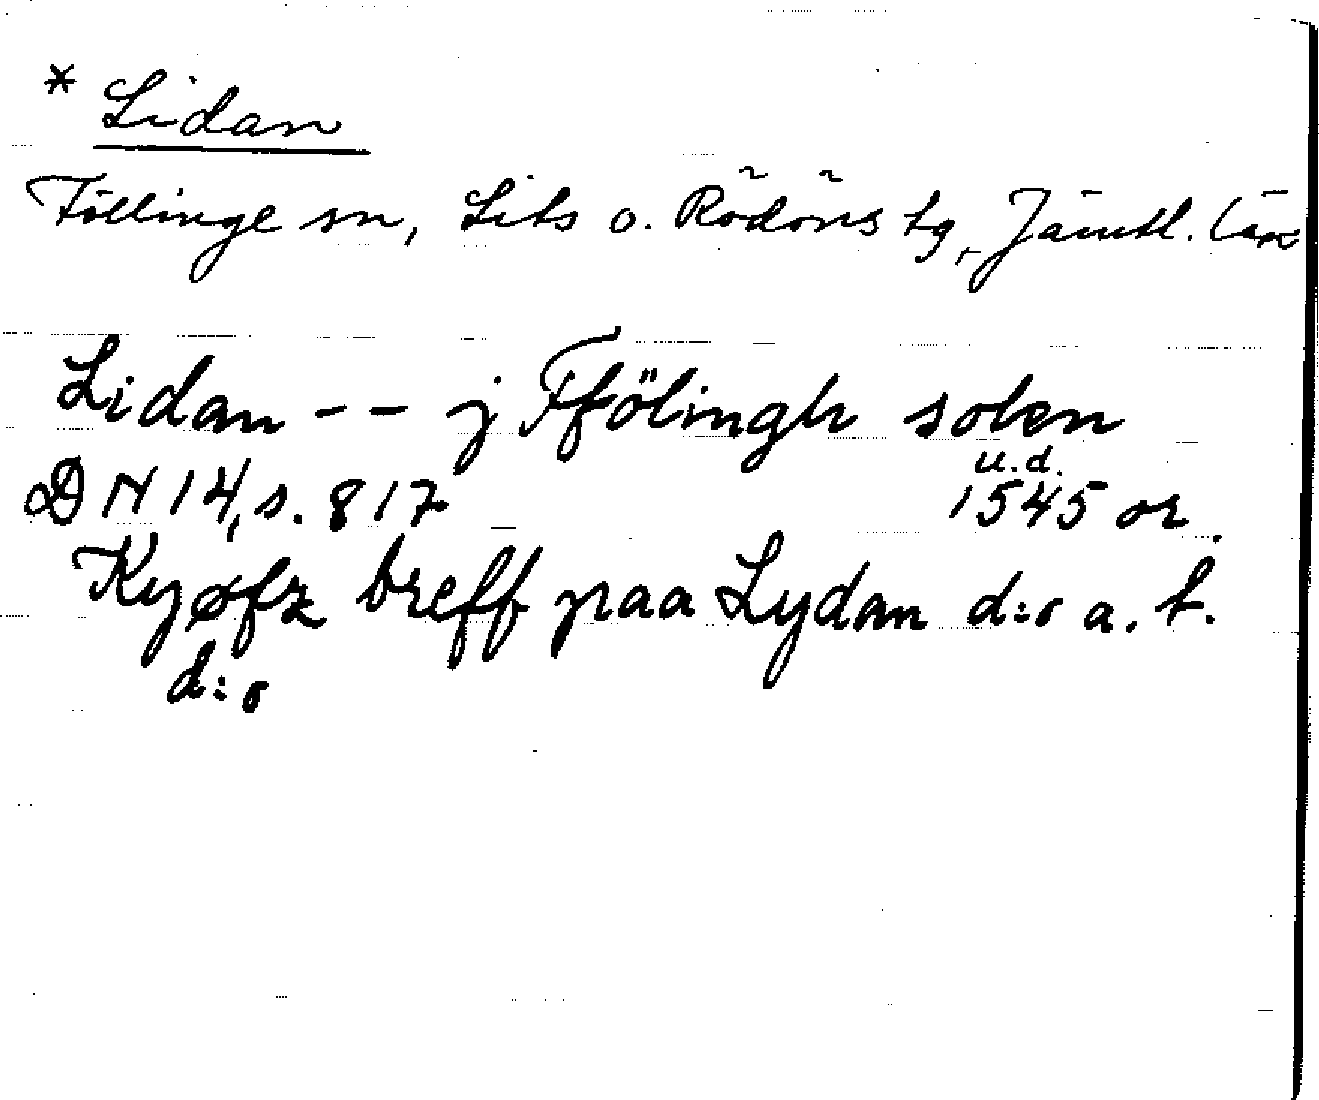 * Lidan
Föllinge sn, Lits o. Rödöns tg, Jämtl. län
Lidan -- j Ffölingh solen
u.d.
DN 14, s. 817 1545 or.
Kyøfz breff paa Lydan d:o a. t.
d:o